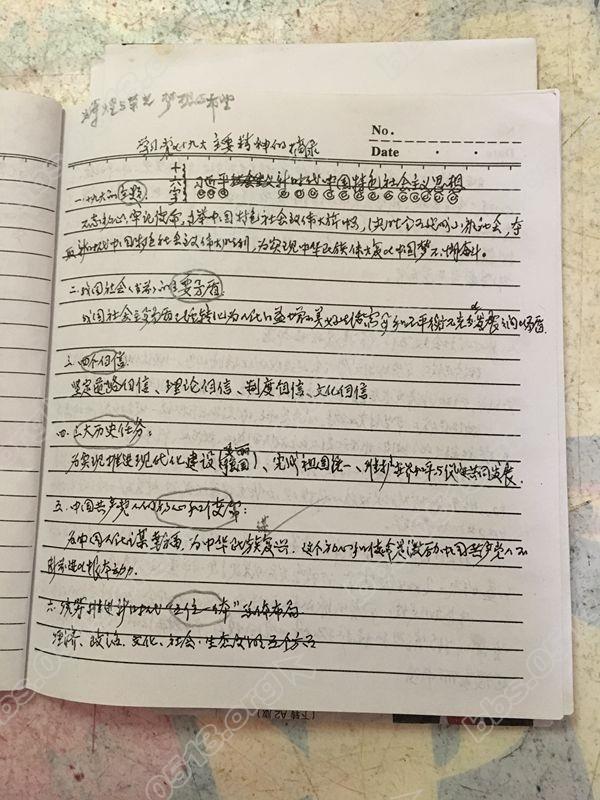 辉煌与荣光 梦想和希望
No.
Date
学习党的十九大主要精神的摘录
十六字
习近平新时代中国特色社会主义思想
一.十九大的主题
不忘初心,牢记使命,高举中国特色社会主义伟大旗帜,决胜全面建成小康社会,夺
取新时代中国特色社会主义伟大胜利,为实现中华民族伟大复兴中国梦不懈奋斗。
二.我国社会的主要矛盾
我国社会主要矛盾已经转化为人民日益增长的美好生活需要和不平衡不充分发展之间的矛盾.
三.四个自信
坚定道路自信、理论自信、制度自信、文化自信.
四.三大历史任务:
为实现推进现代化建设(美丽强国)、完成祖国统一、维护世界和平与促进共同发展.
五.中国共产党人的初心和使命:
为中国人民谋幸福,为中华民族谋复兴,这个初心和使命是激励中国共产党人不
断前进的根本动力.
六.统筹推进新时代“五位一体”总体布局
经济、政治、文化、社会、生态文明五个方面
(下转A2版)
bbs.0513.org